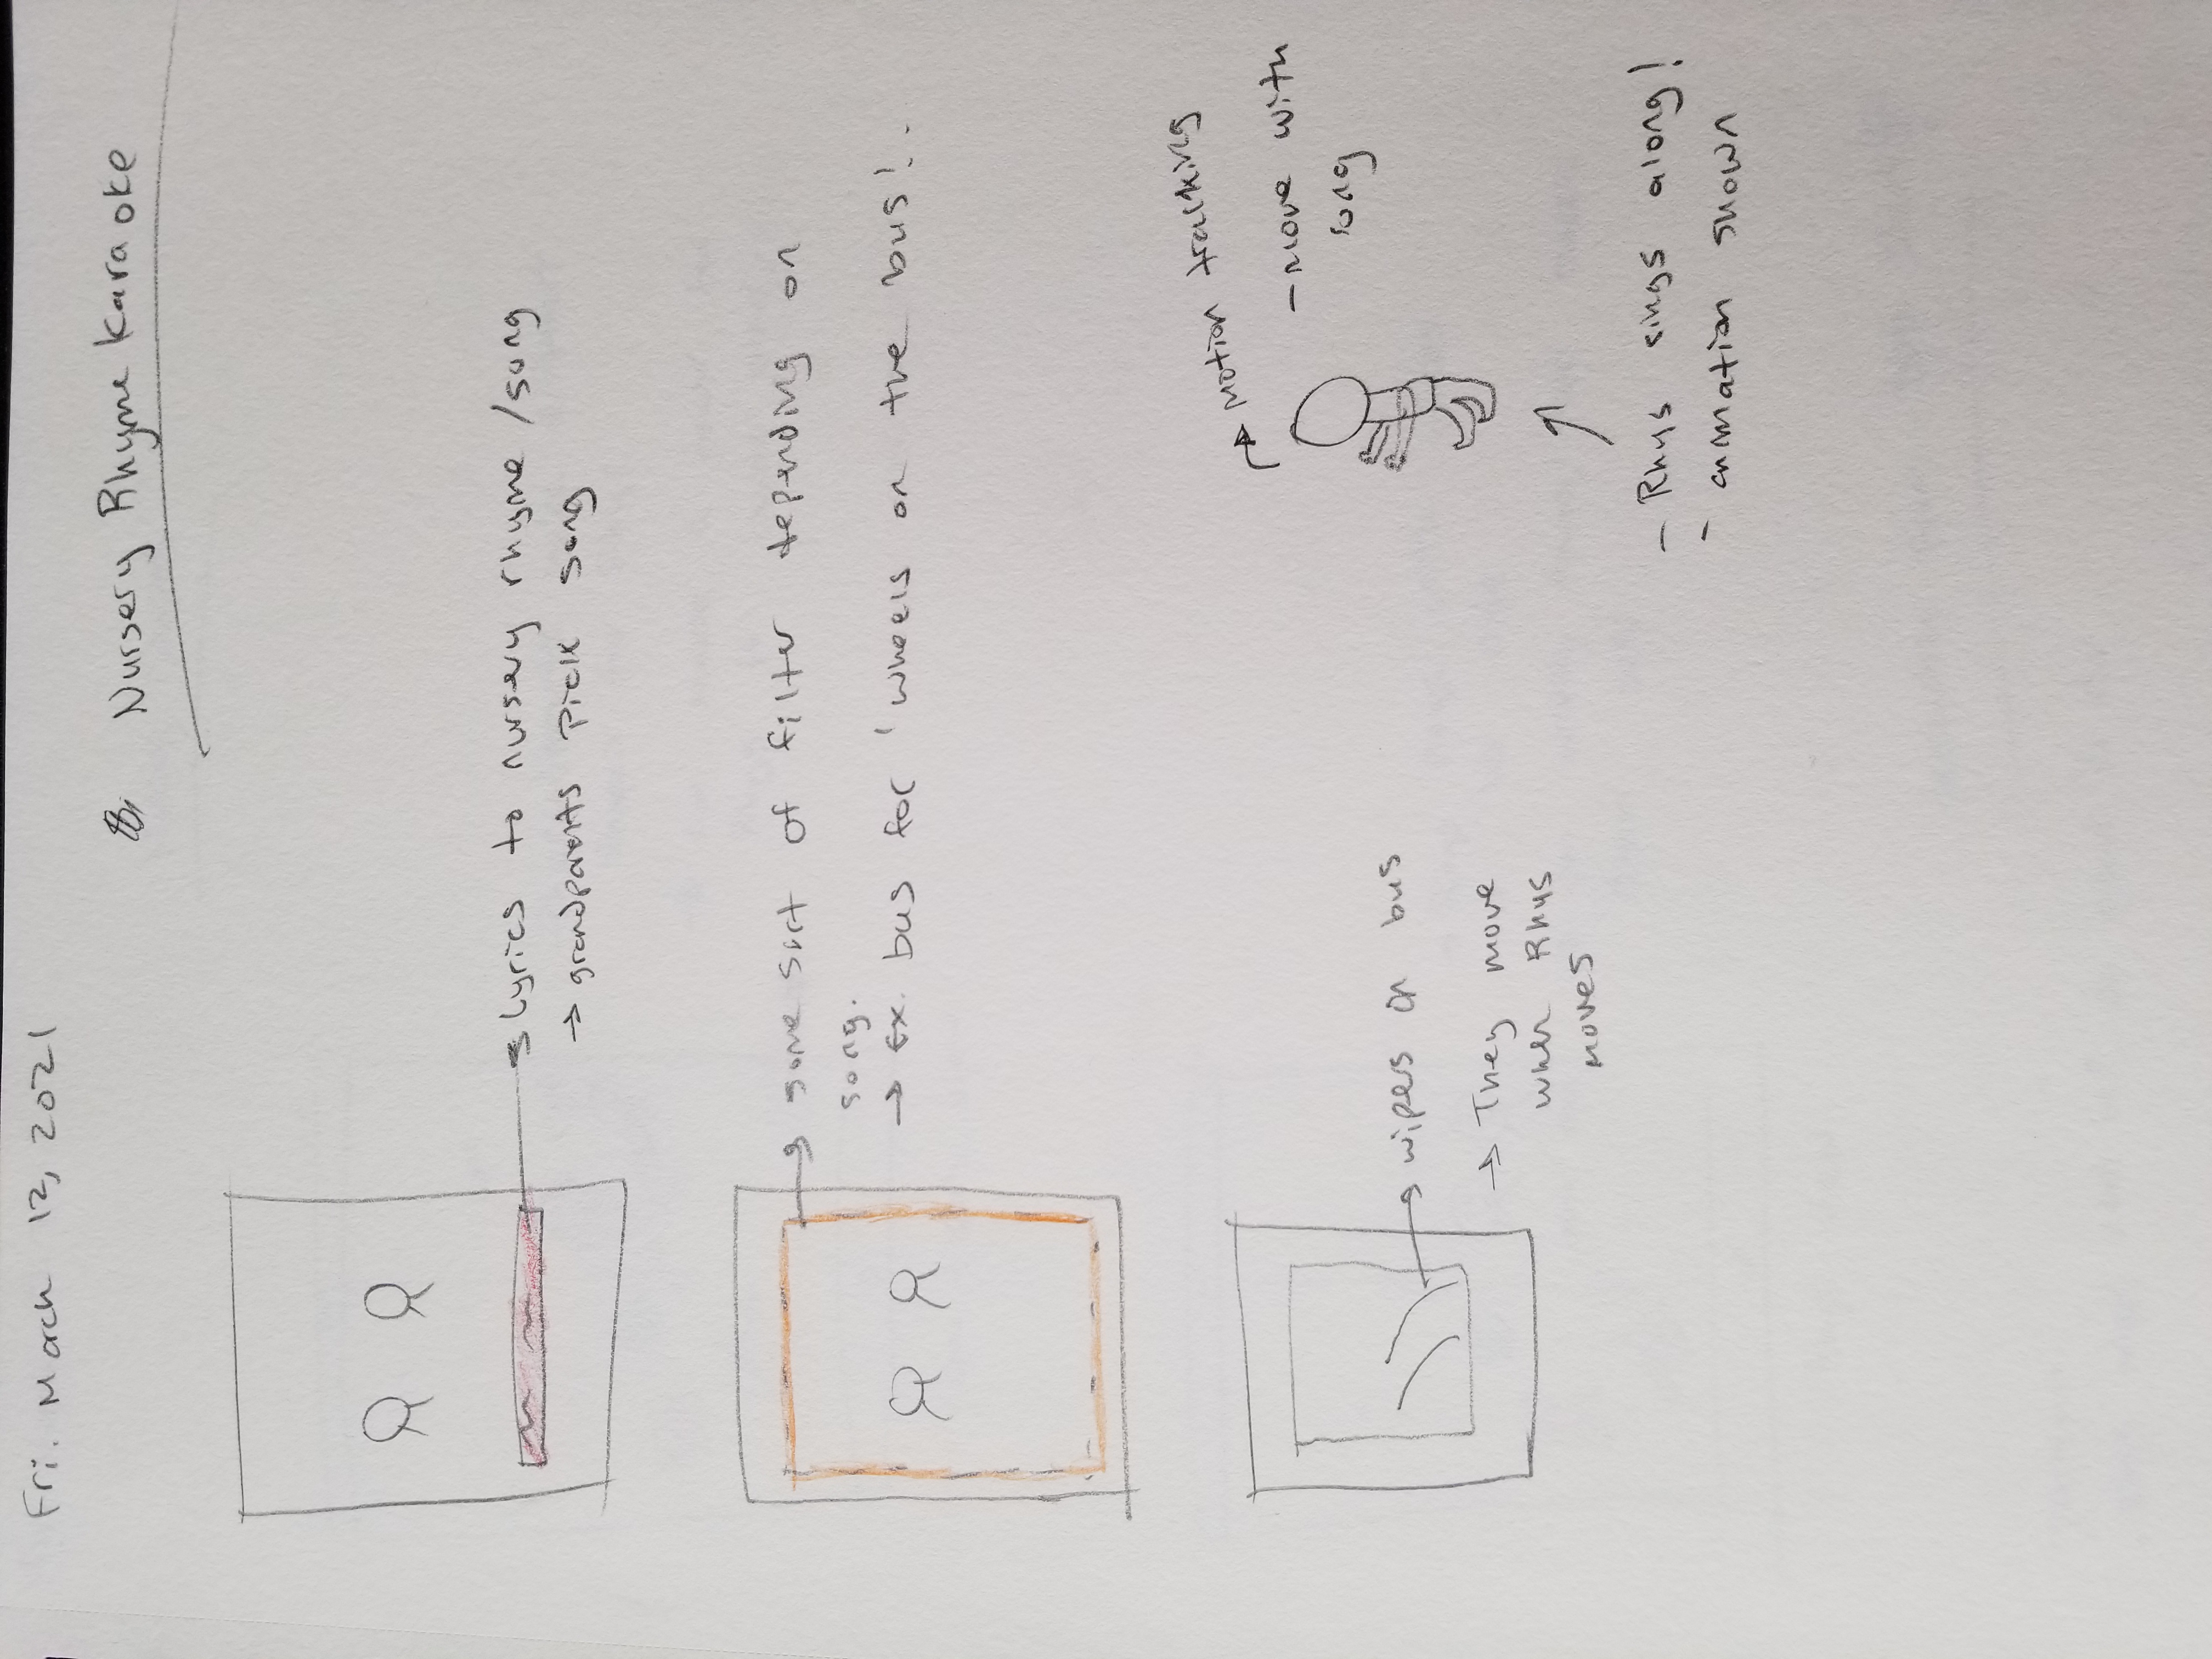 Fri. March 12, 2021
Nursery Rhyme Karaoke
Lyrics to nursery rhyme/song
→ grandparents pick song
some sort of filter depending on
song.
→ Ex. bus for 'wheels on the bus'.
wipers on bus
→ They move
when Rhys
moves
→ motion tracking
- move with
song
- Rhys sings along!
- animation shown